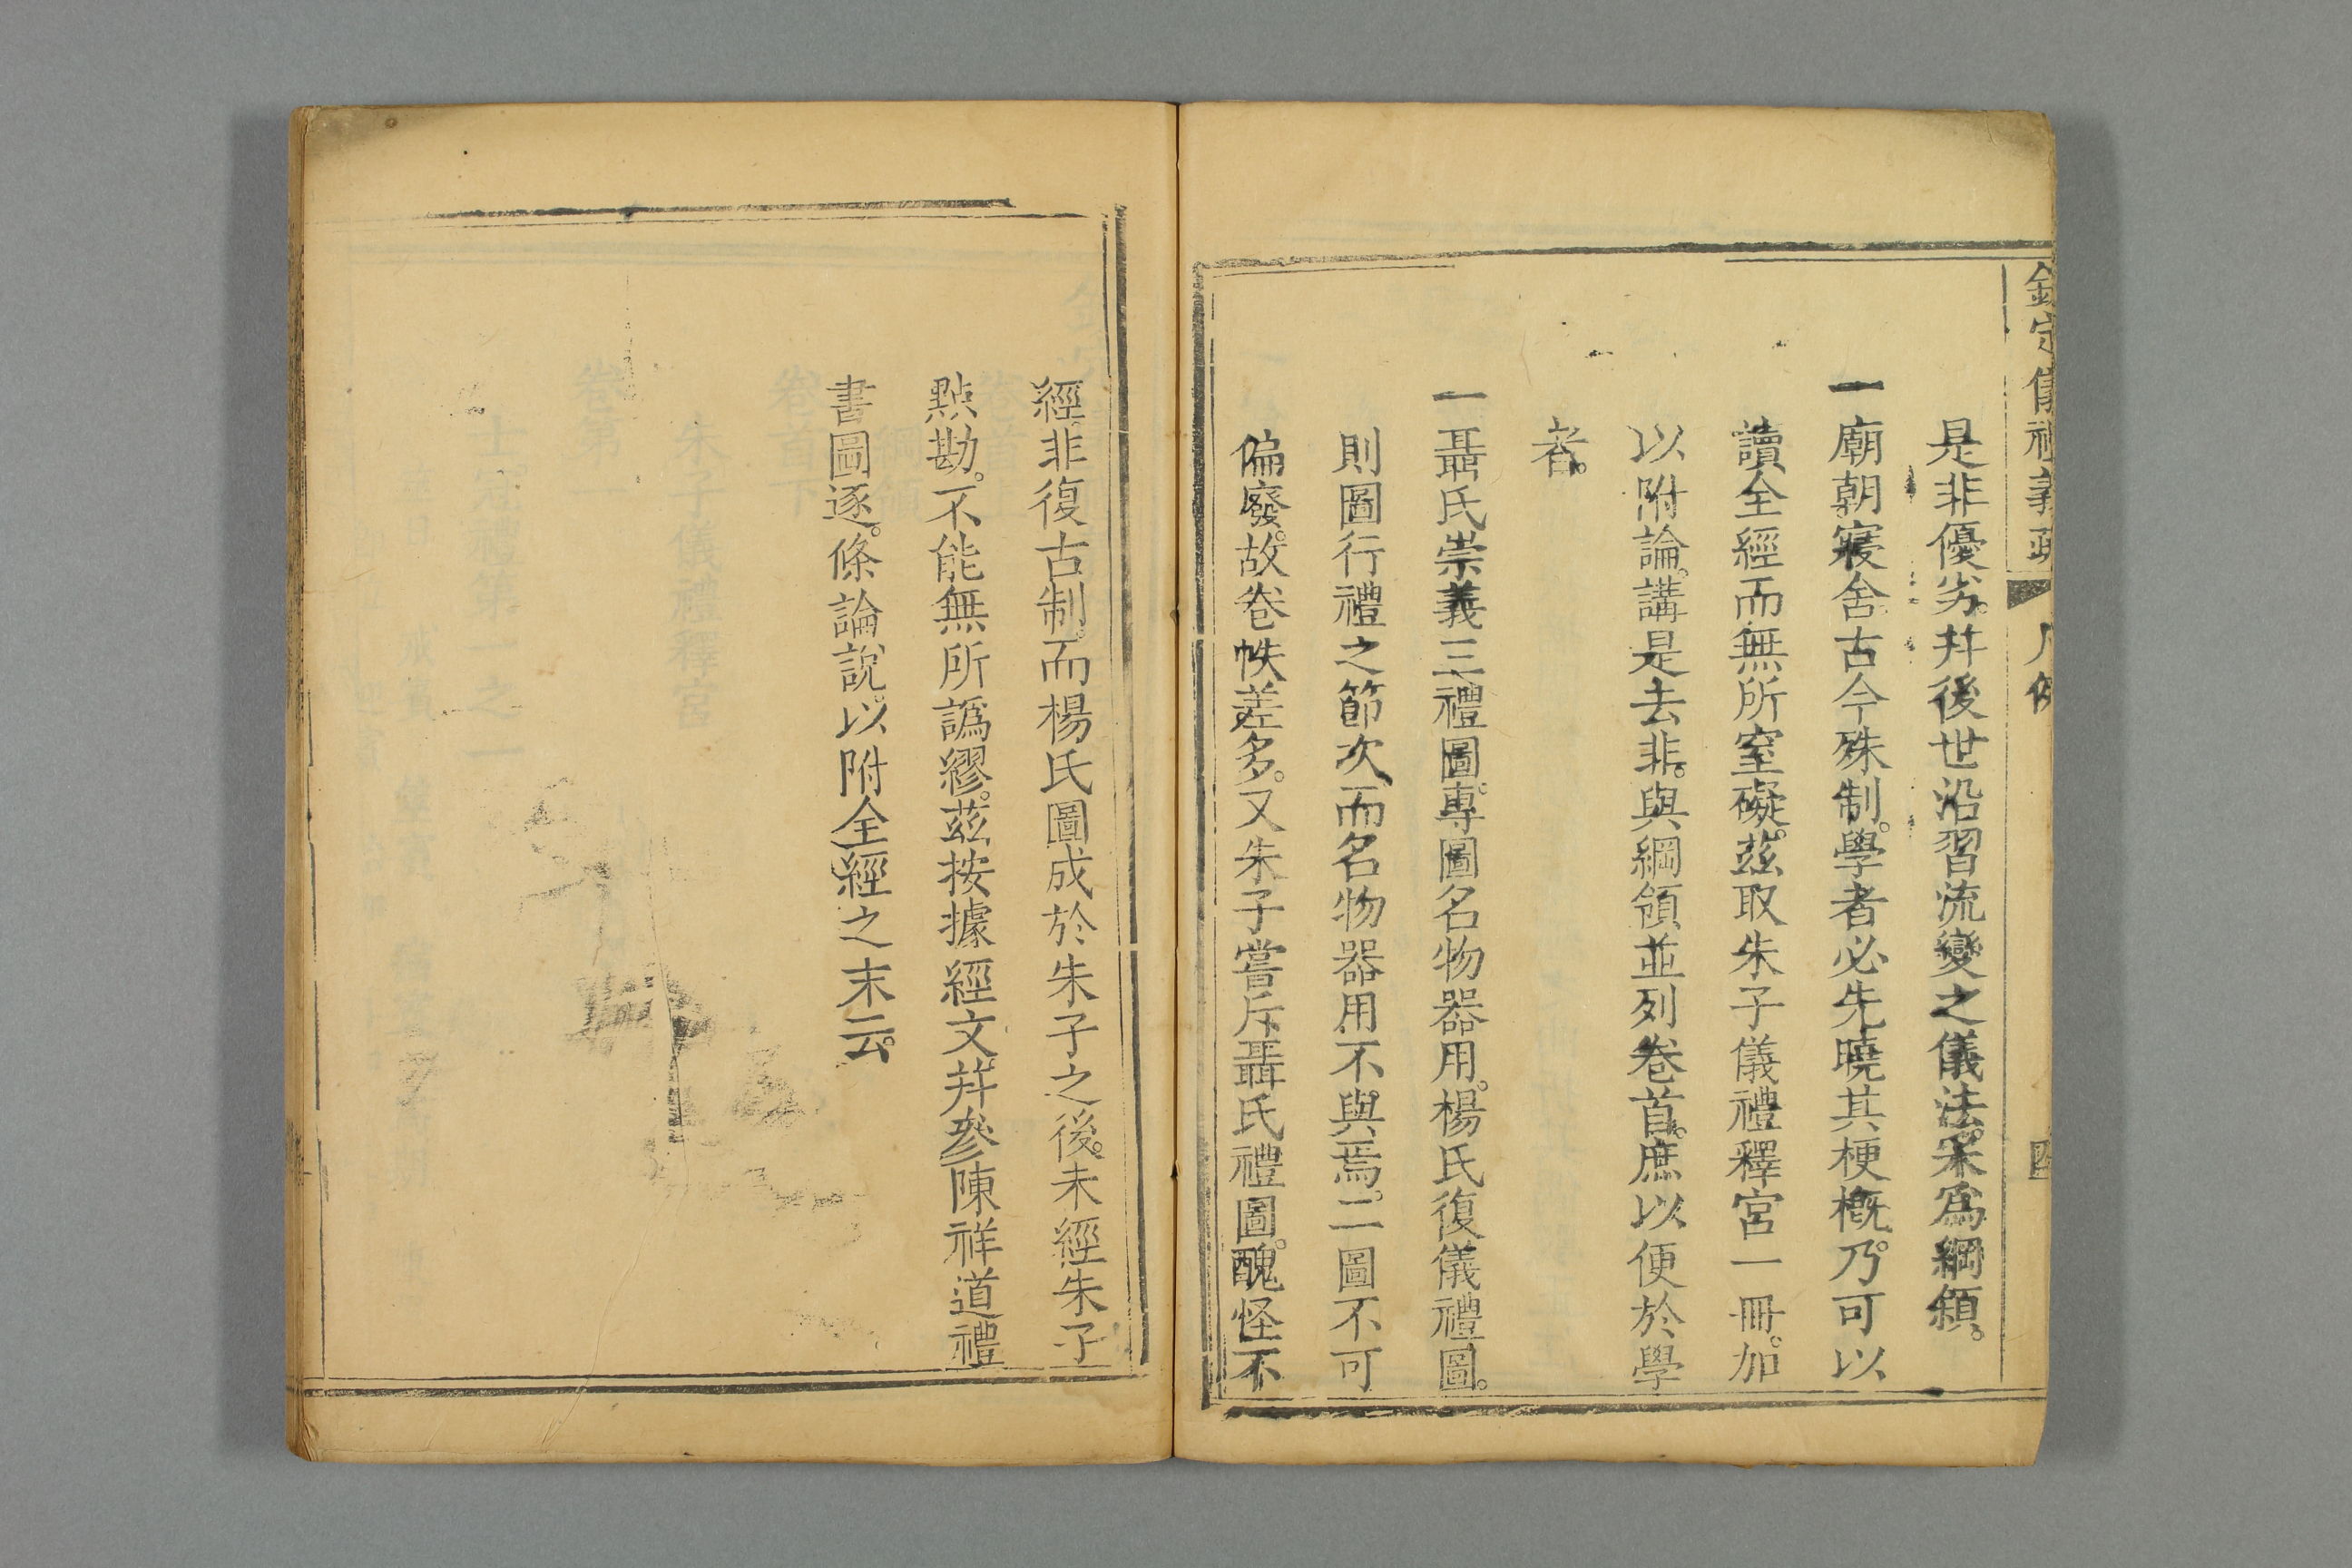 欽定儀禮義疏 凡例 四
是非優劣。幷後世沿習流變之儀法。冞爲綱領。
一廟朝寢舍古今殊制。學者必先曉其梗槪。乃可以
讀全經而無所窒礙。茲取朱子儀禮釋宮一冊。加
以附論。講是去非。與綱領並列卷首。庶以便於學
者。
一聶氏崇義三禮圖。專圖名物器用。楊氏復儀禮圖。
則圖行禮之節次、而名物器用不與焉。二圖不可
偏廢。故卷帙差多。又朱子嘗斥聶氏禮圖。醜怪不
經。非復古制。而楊氏圖成於朱子之後。未經朱子
點勘。不能無所譌繆。茲按據經文。幷參陳祥道禮
書圖逐。條論說。以附全經之末云。